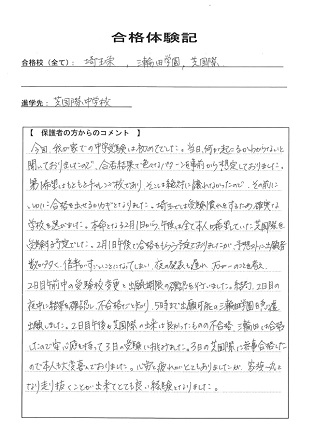 合格体験記
合格校（全て）： 埼玉栄 , 三輪田学園 , 芝国際
進学先： 芝国際中学校
【 保護者の方からのコメント 】
今回、我が家での中学受験は初めてでした。当日、何が起こるかわからないと
聞いておりましたので、合否結果で色々なパターンを事前から想定しておりました。
第1希望はもともとチャレンジ校であり、そこは絶対に譲れなかったので、その前に
いかに合格を出せるかがカギとなりました。埼玉では受験慣れをするため、確実な
学校を選びました。本命となる2月1日から、午後は全て本人が希望していた芝国際を
受験する予定でした。2月1日午後で合格をもらう予定でおりましたが、予想外に出願者
数が多く、倍率がすごいことになってしまい、夜の発表も遅れ、万が一のことを考え、
2日目午前中の受験校変更と出願期限の確認を行いました。結局、2日目の
夜中に結果を確認し、不合格だと知り、5時まで出願可能の三輪田学園を急遽
出願しました。2日目午後も芝国際の出来は良かったものの不合格、三輪田は合格
したので安心感を持って3日の受験に挑めました。3日の芝国際に無事合格した
ので本人も大変喜んでおりました。心労と疲れがとてもありましたが、家族一丸と
なり走り抜くことが出来てとても良い経験となりました。